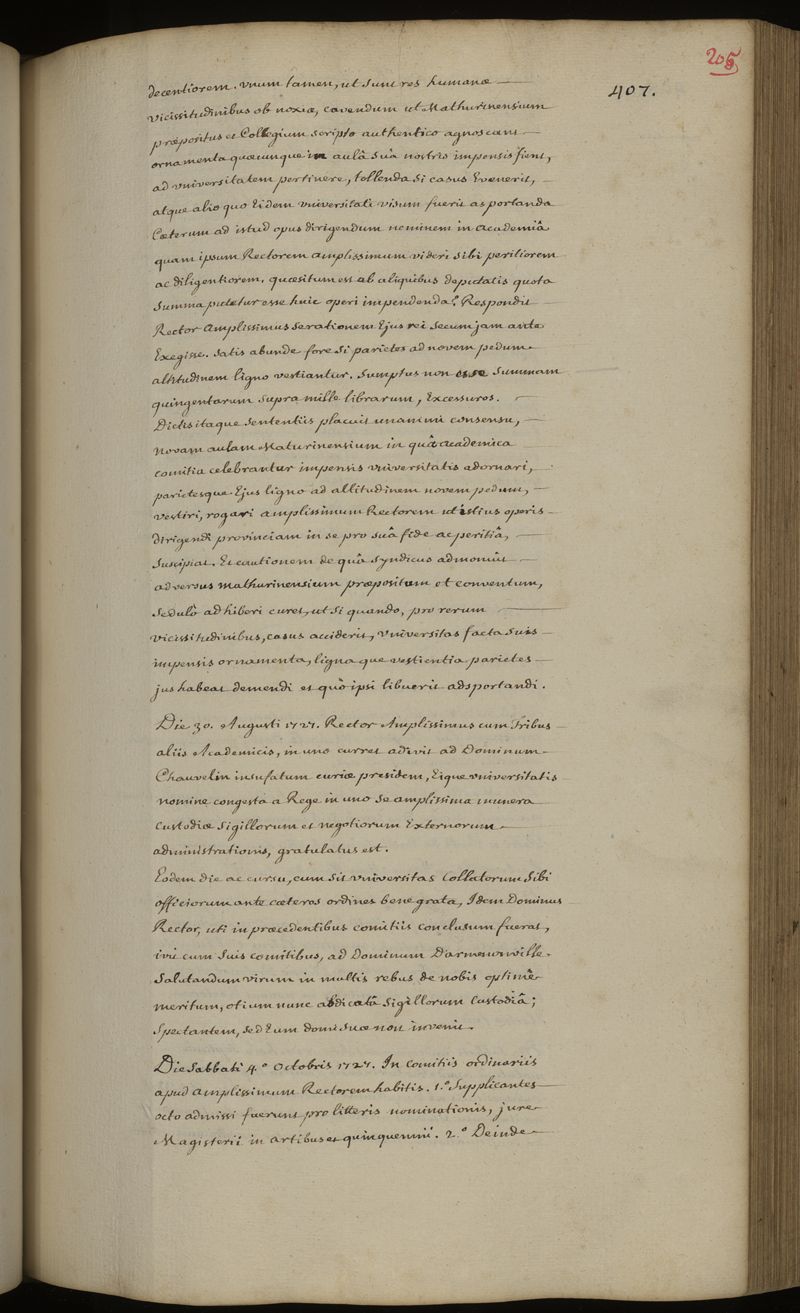 205
407.
decentiorem. vnum tamen, ut sunt res humanæ
vicissitudinibus obnoxiæ, cavendum ut Mathurinensium
præpositus et Collegium scripto authentico agnoscant
ornamenta quæcunque in aulâ suâ nostris impensis fient,
ad vniversitatem pertinere, tollenda si casus Evenerit,
atque alio quo Eidem vniversitati visum fuerit asportanda
Cæterum ad istud opus dirigendum neminem in academiâ
quam ipsum Rectorem amplissimum videri sibi peritiorem
ac diligentiorem. quæsitum est ab aliquibus deputatis quota
summa putetur esse huic operi impendenda? Respondit
Rector Amplissimus se rationem Ejus rei secum jam ante
Exegisse. satis abunde fore si parietes ad novem pedum
altitudinem ligno vestiantur. sumptus non esse summam
quingentarum supra mille librarum, Excessuros.
Dictis itaque sententiis placuit unanimi consensu,
novam aulam Maturinensium in quâ academica
comitia celebrantur impensis vniversitatis adornari,
parietesque Ejus ligno ad altitudinem novem pedum,
vestiri, rogari amplissimum Rectorem ut istius operis
dirigendi provinciam in se pro suâ fide ac peritiâ,
suscipiat. Et cautionem de quâ syndicus admonuit
adversus mathurinensium præpositum et conventum,
sedulò adhiberi curet, ut si quando, pro rerum
vicissitudinibus, casus acciderit, vniversitas facta suis
impensis ornamenta, ligna que vestientia parietes
jus habeat demendi et quò ipsi libuerit adsportandi.
Die 30. Augusti 1727. Rector Amplissimus cum tribus
aliis Academicis, in uno curret adivit ad Dominum
Chauvelin insulatum curiæ presidem, Eique vniversitatis
nomine congesta a Rege in uno se amplissima munera
Custodiæ sigillorum et negotiorum Externorum
administrationis, gratulatus est.
Eodem die ac cursu, cum sit vniversitas Collatorum sibi
officiorum ante cæteros ordines bene grata, Idem Dominus
Rector, uti in præcedentibus comitiis conclusum fuerat,
ivit cum suis comitibus, ad Dominum D'armenonville
salutandum virum in multis rebus de nobis optimè
meritum, otium nunc abdicatâ sigillorum Custodiâ;
spectantem, sed Eum domi suæ non invenit.
Die Sabbati 4.º Octobris 1727. In Comitiis ordinariis
apud Amplissimum Rectorem habitis. 1.º Supplicantes
octo admissi fuerunt pro litteris nominationis, jure
Magisterii in artibus et quinquennii. 2.º Deinde